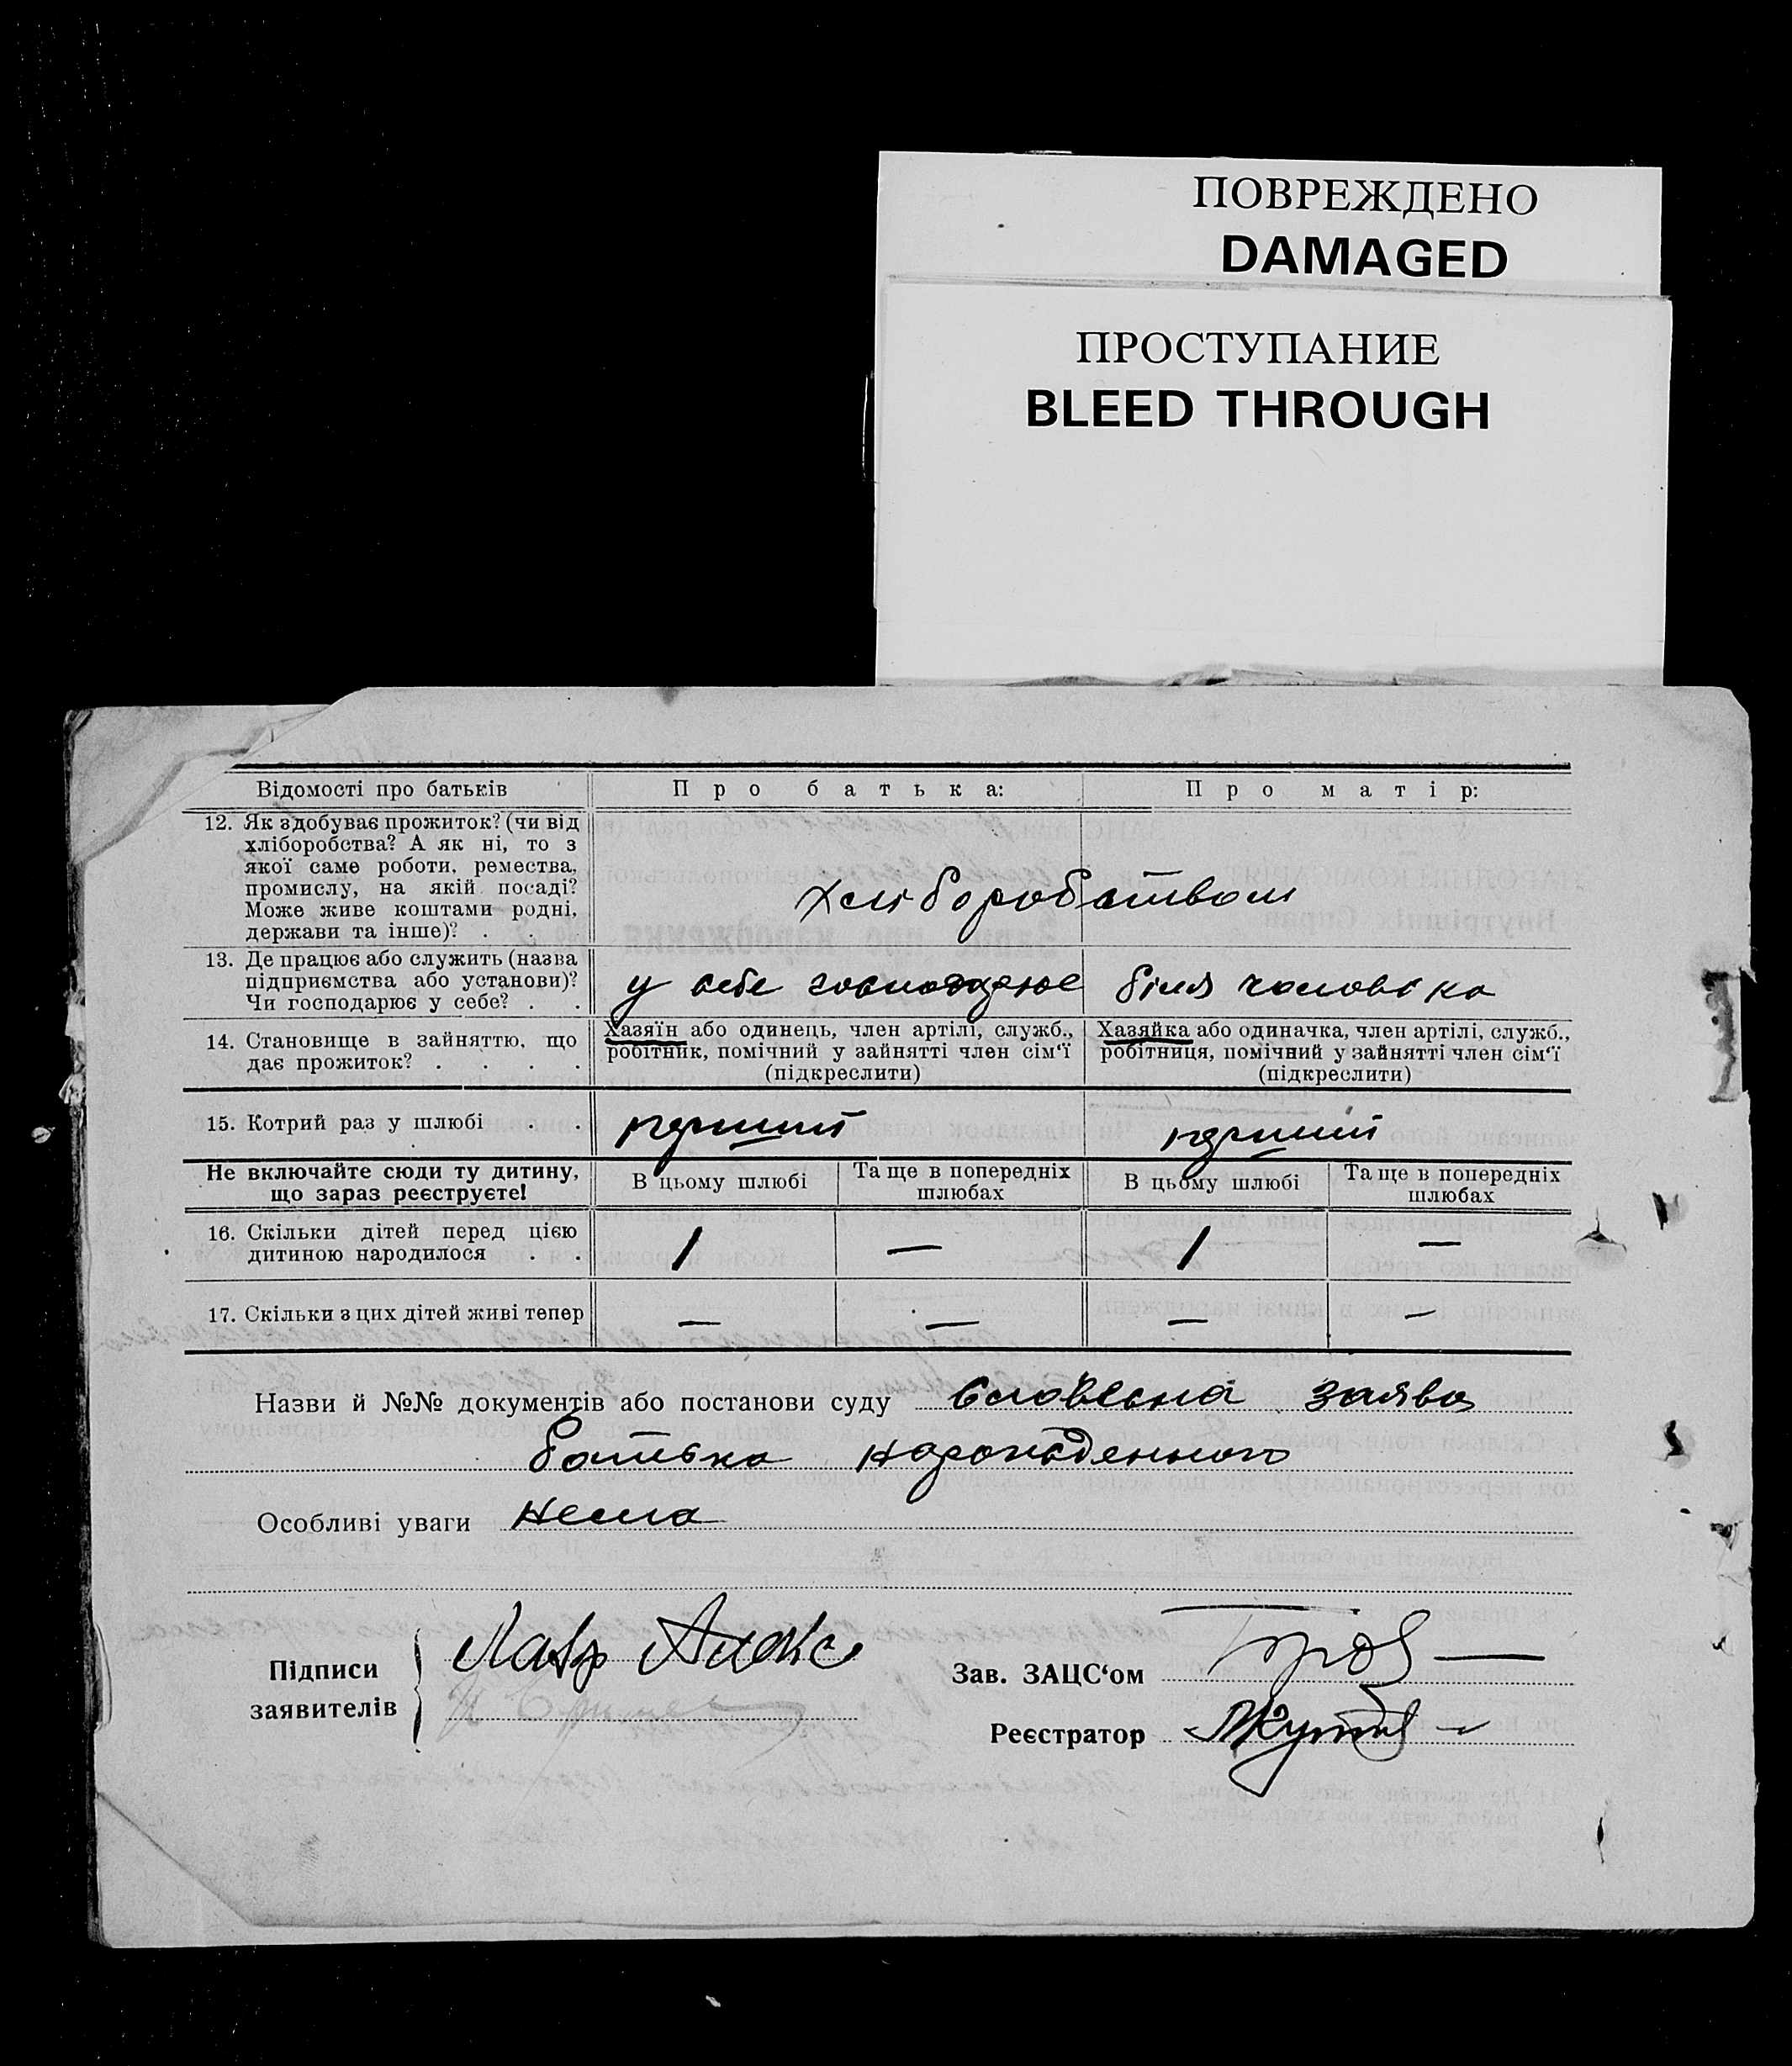 ПОВРЕЖДЕНО
DAMAGED
ПРОСТУПАНИЕ
BLEED THROUGH
Відомості про батьків Про батька: Про матір:
12. Як здобуває прожиток? (чи від
хліборобства? А як ні, то з
якої саме роботи, ремества,
промислу, на якій посаді?
Може живе коштами родні,
держави та інше)? . .
хліборобством
13. Де працює або служить (назва
підприємства або установи)?
Чи господарює у себе? . .
у себе господарює біля чоловіка
14. Становище в зайняттю, що
дає прожиток? . . . .
Хазяїн або одинець, член артілі, служб.,
робітник, помічний у зайнятті член сім‘ї
(підкреслити)
Хазяйка або одиначка, член артілі, служб.,
робітниця, помічний у зайнятті член сім‘ї
(підкреслити)
15. Котрий раз у шлюбі . . перший перший
Не включайте сюди ту дитину,
що зараз реєструєте!
В цьому шлюбі Та ще в попередніх
шлюбах
В цьому шлюбі Та ще в попередніх
шлюбах
16. Скільки дітей перед цією
дитиною народилося . .
1 — 1 —
17. Скільки з цих дітей живі тепер — — — —
Назви й №№ документів або постанови суду словесна заява
батька народженого
Особливі уваги нема
Підписи
заявителів
Зав. ЗАЦС‘ом
Реєстратор